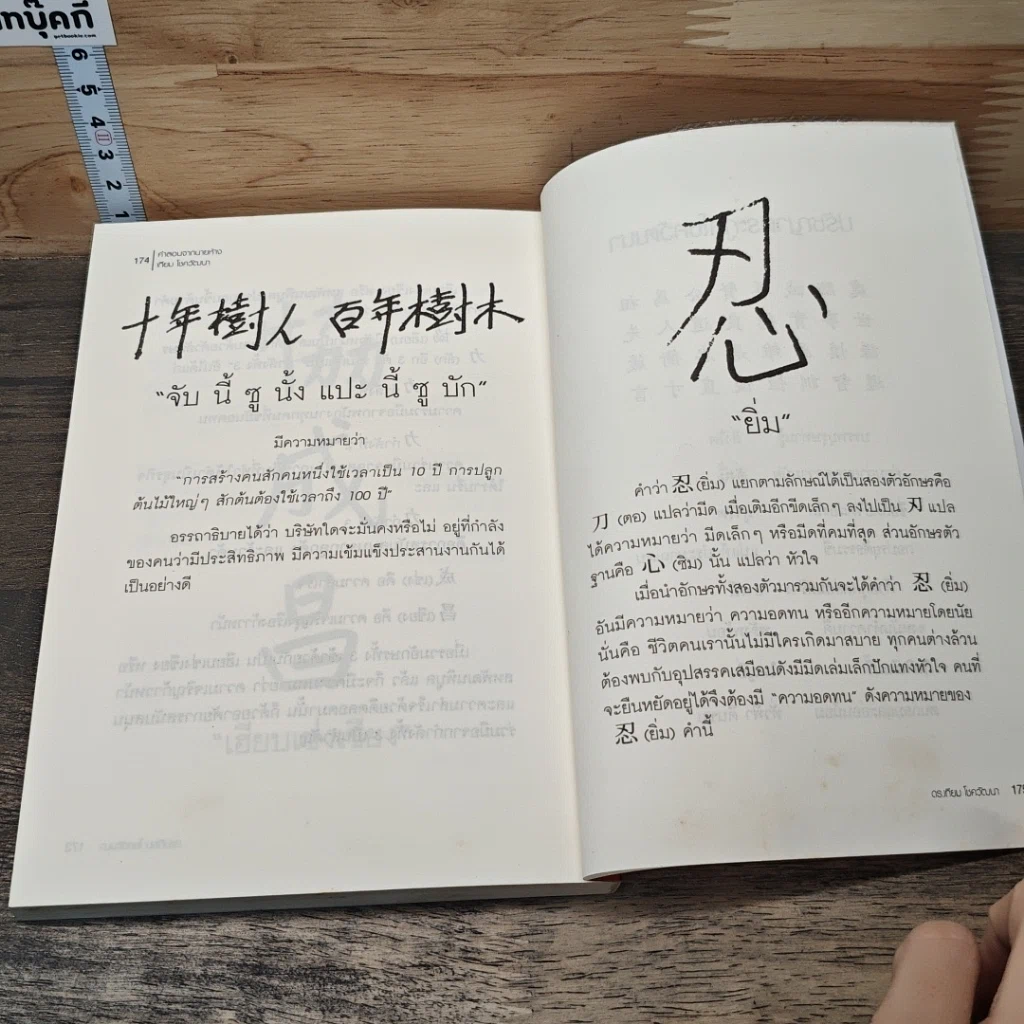 ทบุ๊คกี้
getbookie.com
6
5
4
3
2
1
174
คำสอนจากนายห้าง
เทียม โชควัฒนา
十年樹人 百年樹木
“จับ นี้ ซู นั้ง แปะ นี้ ซู บัก”
มีความหมายว่า
“การสร้างคนสักคนหนึ่งใช้เวลาเป็น 10 ปี การปลูก
ต้นไม้ใหญ่ๆ สักต้นต้องใช้เวลาถึง 100 ปี”
อรรถาธิบายได้ว่า บริษัทใดจะมั่นคงหรือไม่ อยู่ที่กำลัง
ของคนว่ามีประสิทธิภาพ มีความเข้มแข็งประสานงานกันได้
เป็นอย่างดี
忍
“ยิ่ม”
คำว่า 忍 (ยิ่ม) แยกตามลักษณ์ได้เป็นสองตัวอักษรคือ
刀 (ตอ) แปลว่ามีด เมื่อเติมอีกขีดเล็กๆ ลงไปเป็น 刃 แปล
ได้ความหมายว่า มีดเล็กๆ หรือมีดที่คมที่สุด ส่วนอักษรตัว
ฐานคือ 心 (ซิม) นั้น แปลว่า หัวใจ
เมื่อนำอักษรทั้งสองตัวมารวมกันจะได้คำว่า 忍 (ยิ่ม)
อันมีความหมายว่า ความอดทน หรืออีกความหมายโดยนัย
นั่นคือ ชีวิตคนเรานั้นไม่มีใครเกิดมาสบาย ทุกคนต่างล้วน
ต้องพบกับอุปสรรคเสมือนดังมีมีดเล่มเล็กปักแทงหัวใจ คนที่
จะยืนหยัดอยู่ได้จึงต้องมี “ความอดทน” ดังความหมายของ
忍 (ยิ่ม) คำนี้
ดร.เทียม โชควัฒนา 175